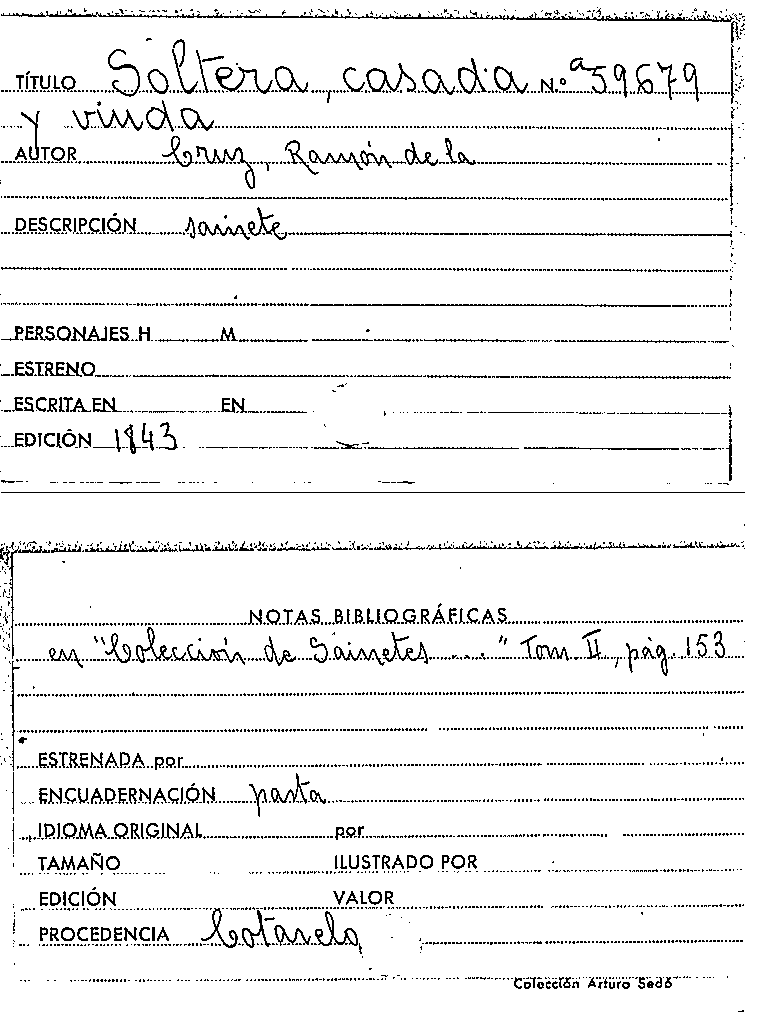 TÍTULO Soltera, casada N.º a59679
y viuda
AUTOR Cruz, Ramón de la
DESCRIPCIÓN sainete
PERSONAJES H M
ESTRENO
ESCRITA EN EN
EDICIÓN 1843
NOTAS BIBLIOGRÁFICAS
en "Colección de Sainetes ...." Tom II, pág. 153
ESTRENADA por
ENCUADERNACIÓN pasta
IDIOMA ORIGINAL por
TAMAÑO ILUSTRADO POR
EDICIÓN VALOR
PROCEDENCIA Cotarelo
Colección Arturo Sedó